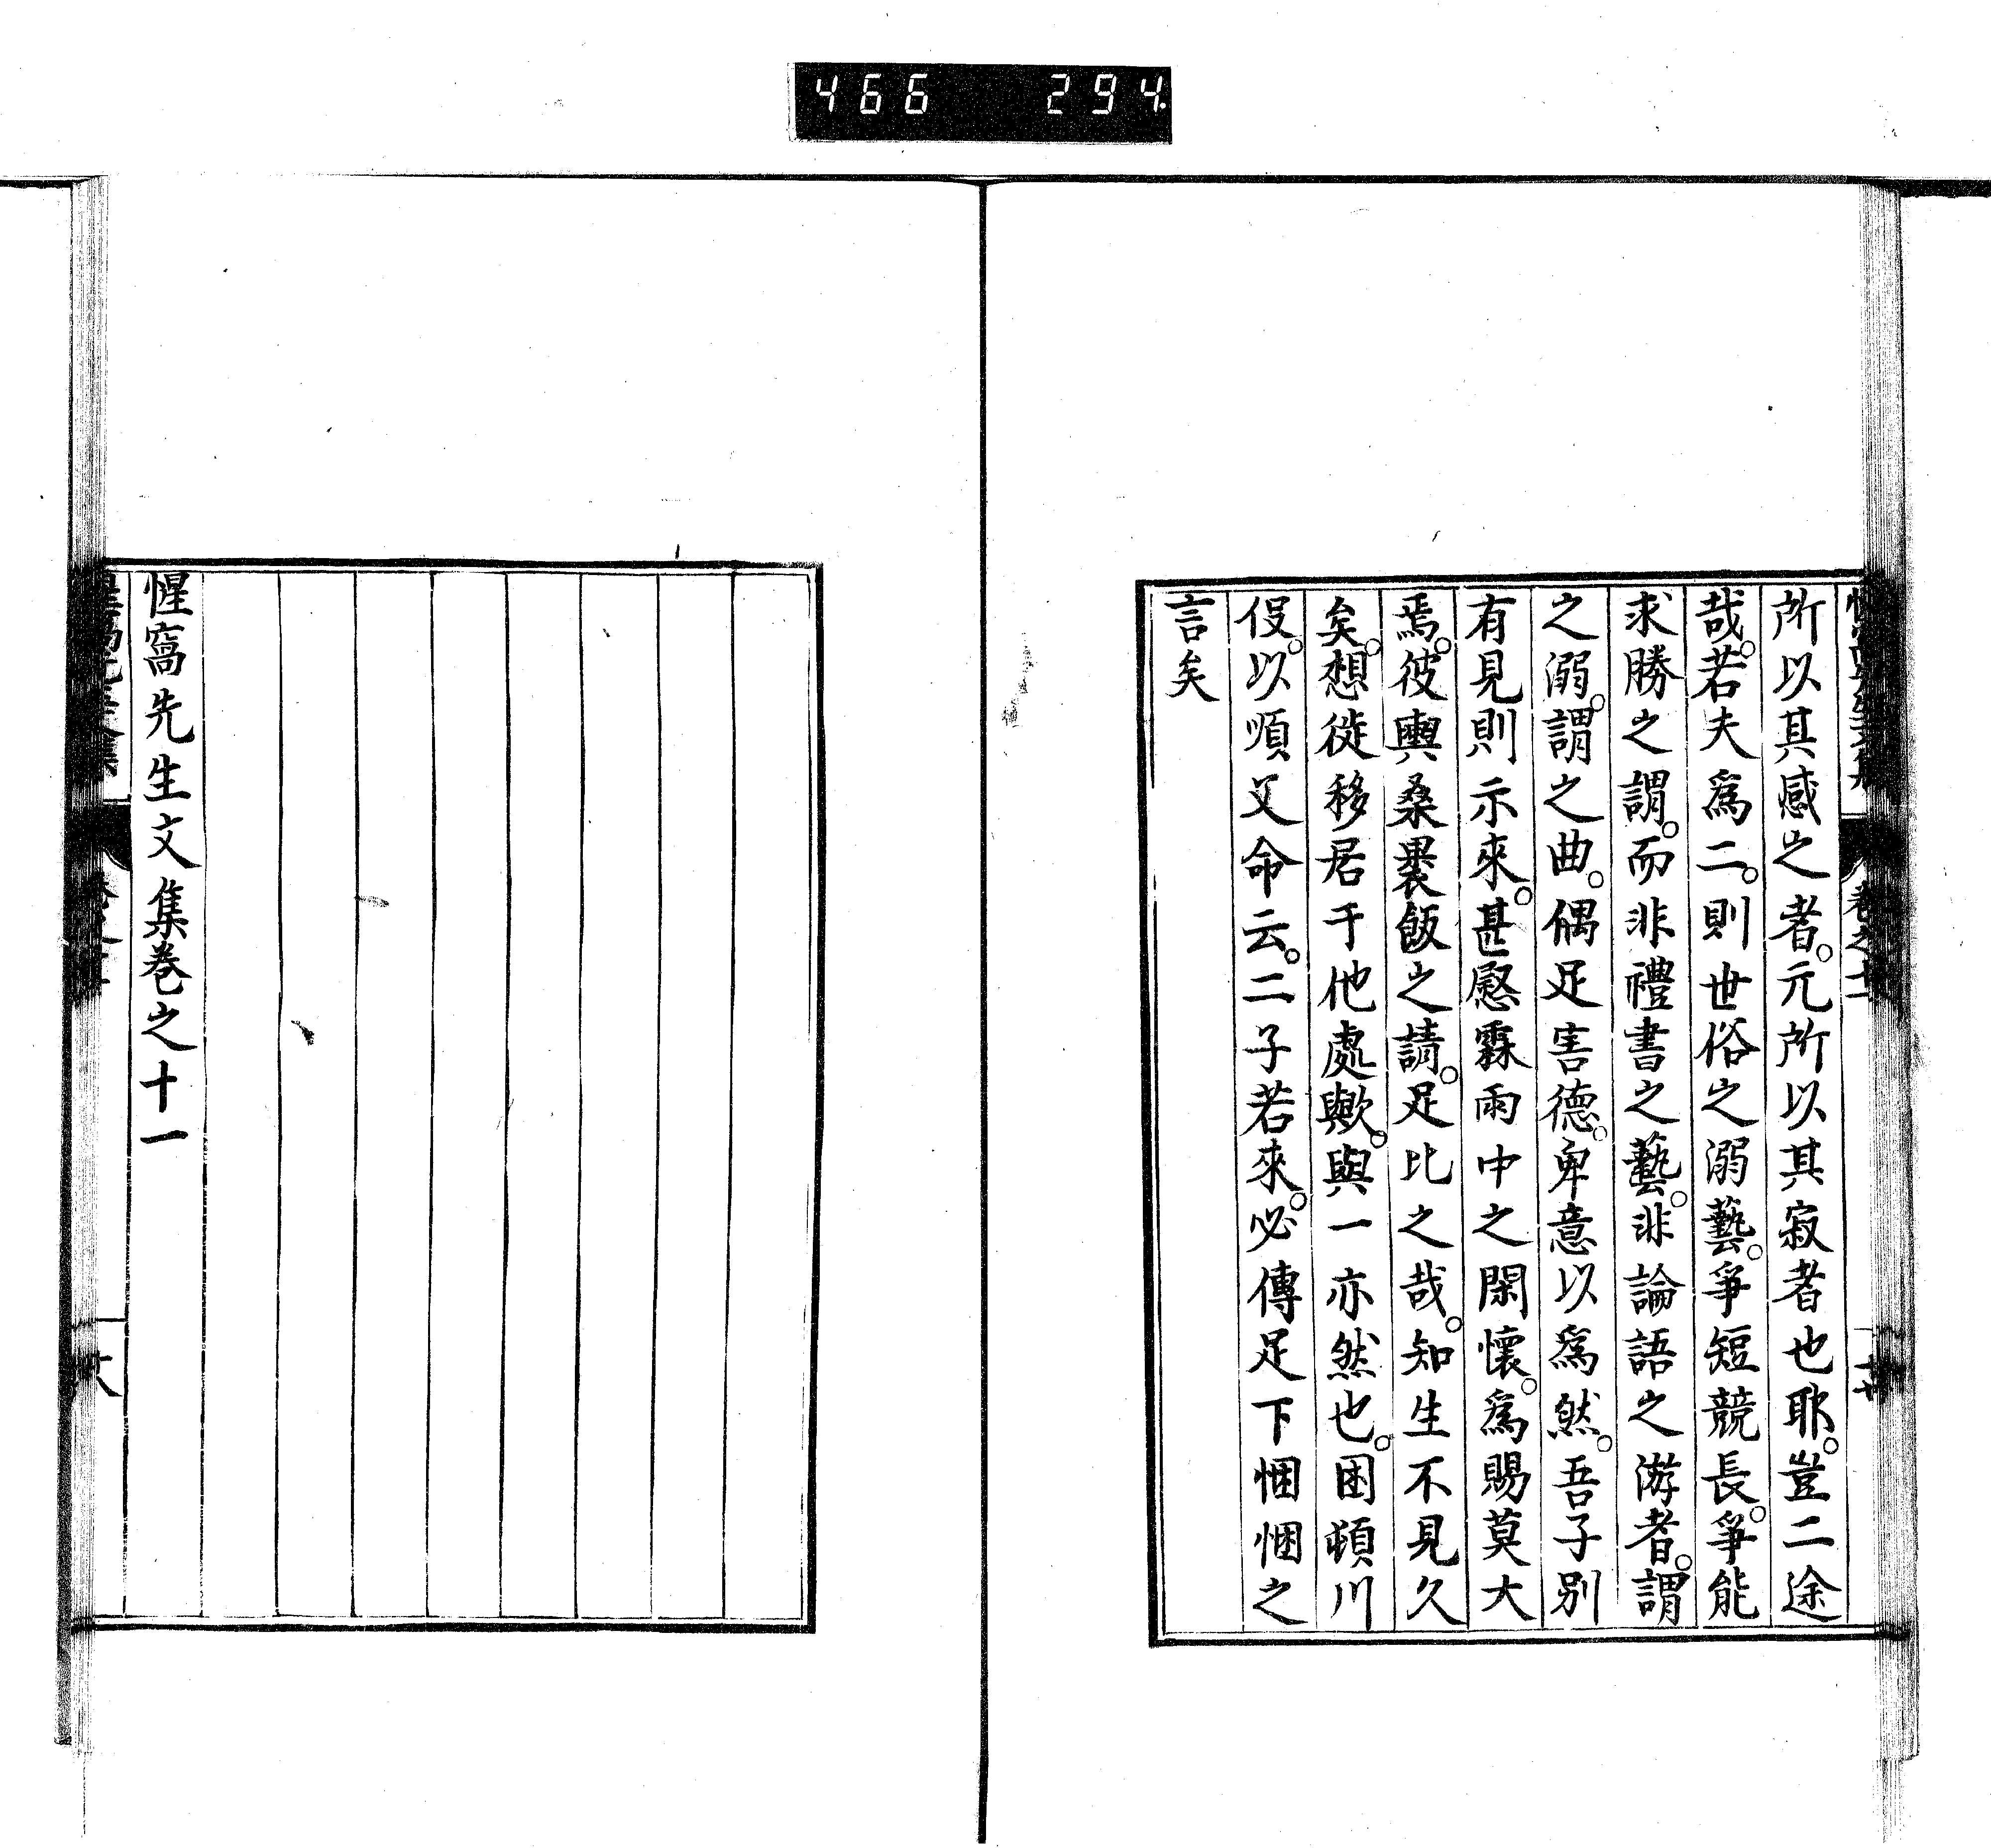 466 294
所以其感之者。元所以其寂者也耶。豈二途
哉。若夫爲二。則世俗之溺藝。爭短競長。爭能
求勝之謂。而非禮書之藝。非論語之游者。謂
之溺。謂之曲。偶足害德。卑意以爲然。吾子別
有見則示來。甚慰霖雨中之閑懷。爲賜莫大
焉。彼輿桑裹飯之請。足比之哉。知生不見久
矣。想徙移居于他處歟。與一亦然也。困頓川
役。以順父命云。二子若來。必傳足下悃悃之
言矣
惺窩先生文集卷之十一